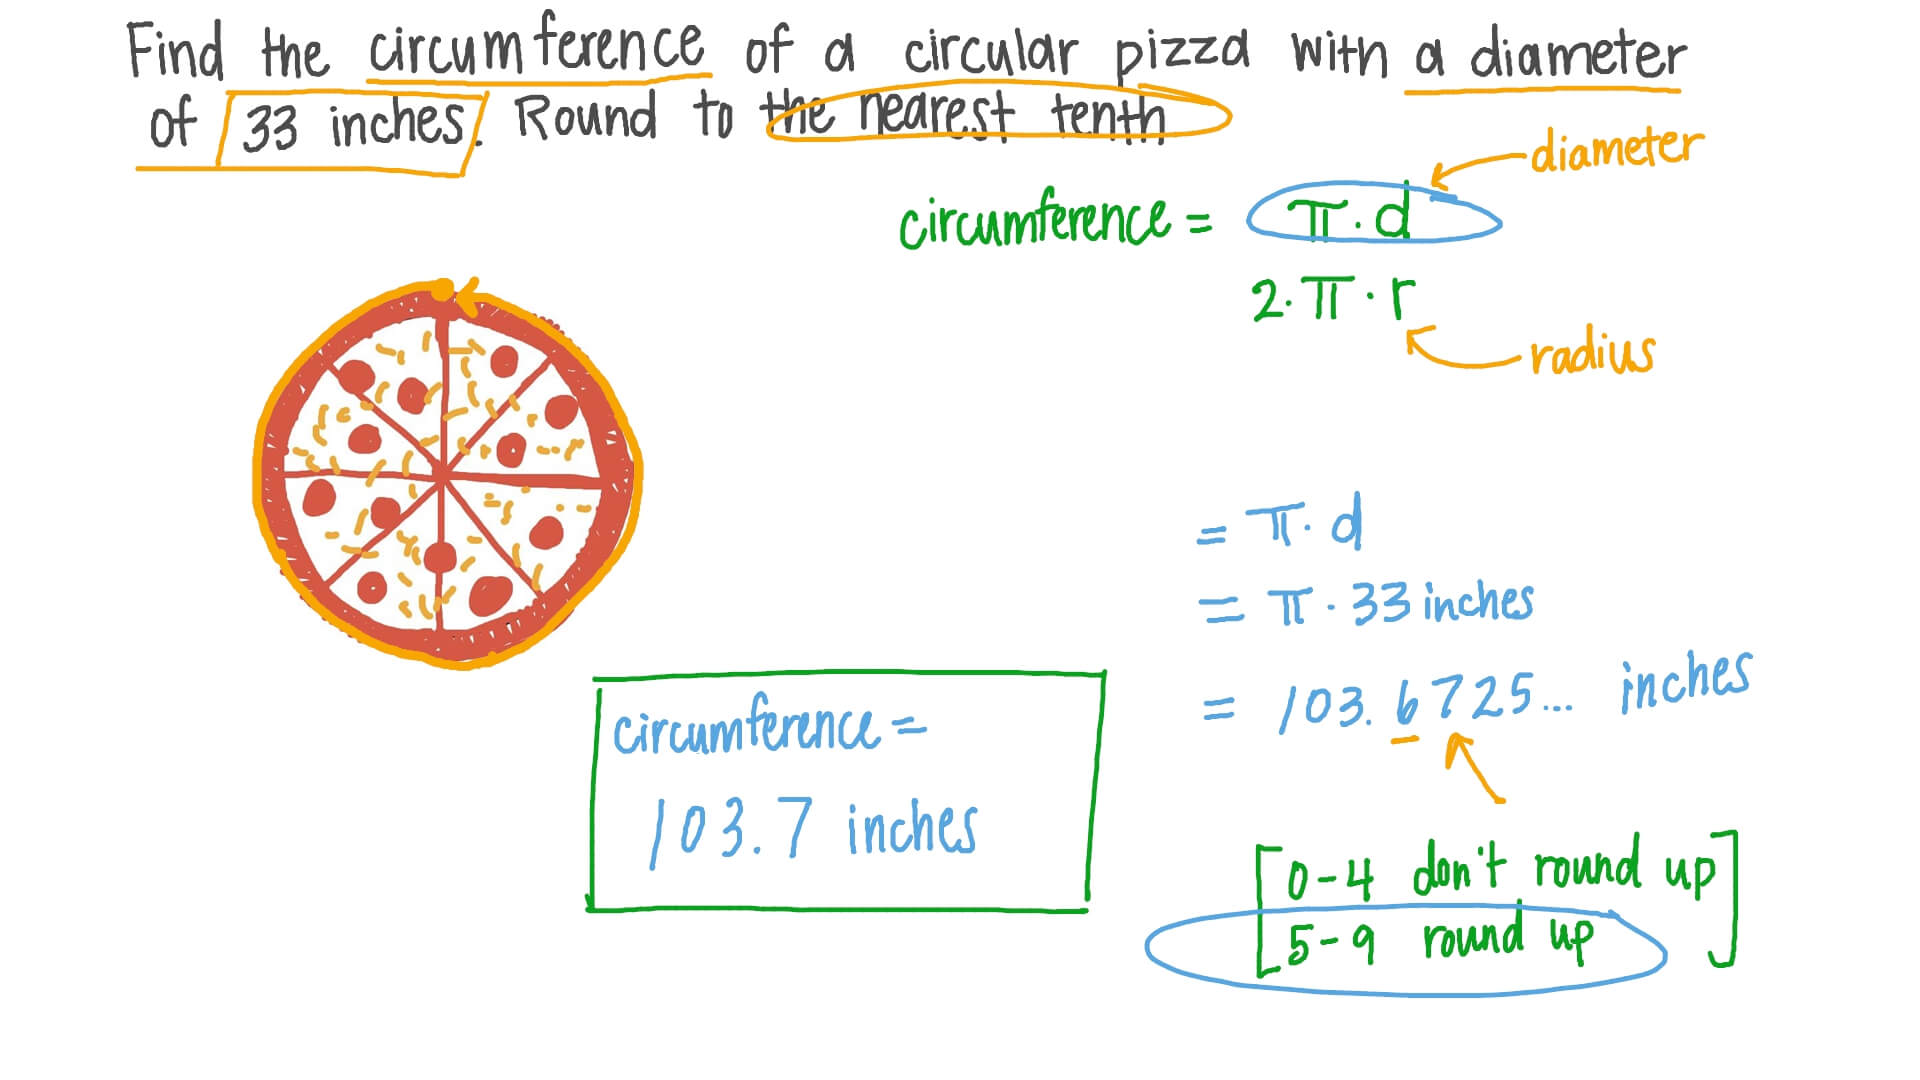 Find the circumference of a circular pizza with a diameter
of 33 inches. Round to the nearest tenth
diameter
circumference = π · d
2 · π · r
radius
= π · d
= π · 33 inches
= 103.6725... inches
circumference =
103.7 inches
0-4 don't round up
5-9 round up